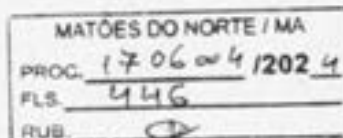 MATÕES DO NORTE / MA
PROC. 1706004 /2024
FLS. 446
RUB.